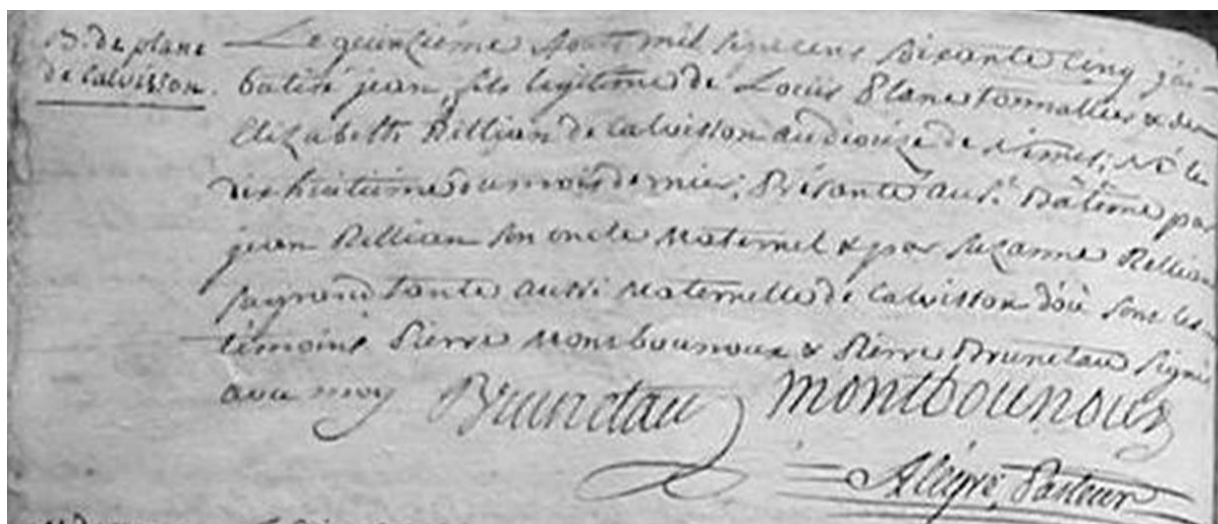 B. de plane
de Calvisson.
Le quinsième Aoust mil sepcens soixante Cinq j'ai
batisé jean, fils legitime de Louis Plane tonnallier & de
Elizabeth Rellian de Calvisson au diouize de Nimes, Né le
dix huitieme du mois dernier, Présanté au St. Bâtême par
jean Rellian son oncle Maternel & par Suzanne Rellian
sa grand tante aussi Maternelle de Calvisson d'où sont les
témoins Pierre Montbounoux & Pierre Brunetau signés
avec moy Brunetau Montbounoux
Alègre, Pasteur